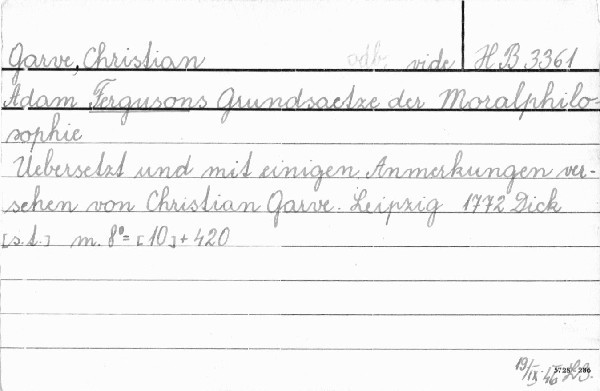 Garve, Christian odb. vide H B 3361
Adam Fergusons Grundsaetze der Moralphilo-
sophie
Uebersetzt und mit einigen Anmerkungen ver-
sehen von Christian Garve. Leipzig 1772 Dick
[s.t.] m. 8°= [10]+420
19/IX 46
5728 - 286